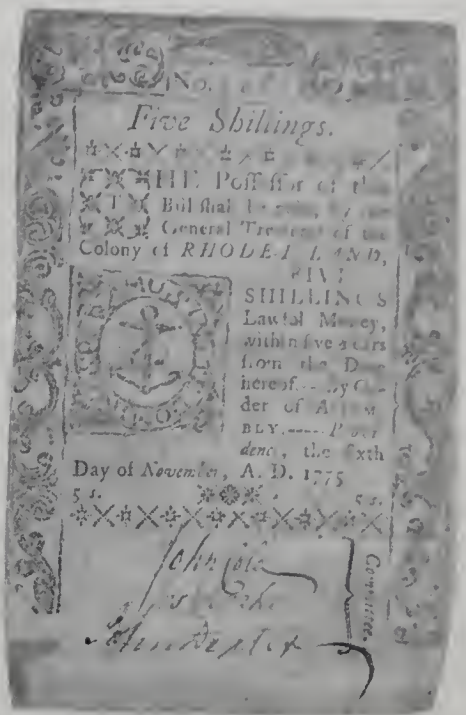 No.
Five Shillings.
THE Possessor of this
Bill shall be paid, by the
General Treasurer of the
Colony of RHODE-ISLAND,
FIVE
SHILLINGS
Lawful Money,
within five Years
from the Date
hereof.--By Or-
der of ASSEM-
BLY.----Provi-
dence, the sixth
Day of November, A. D. 1775
5 s. 5 s.
John Cole
John Dexter
Committee.